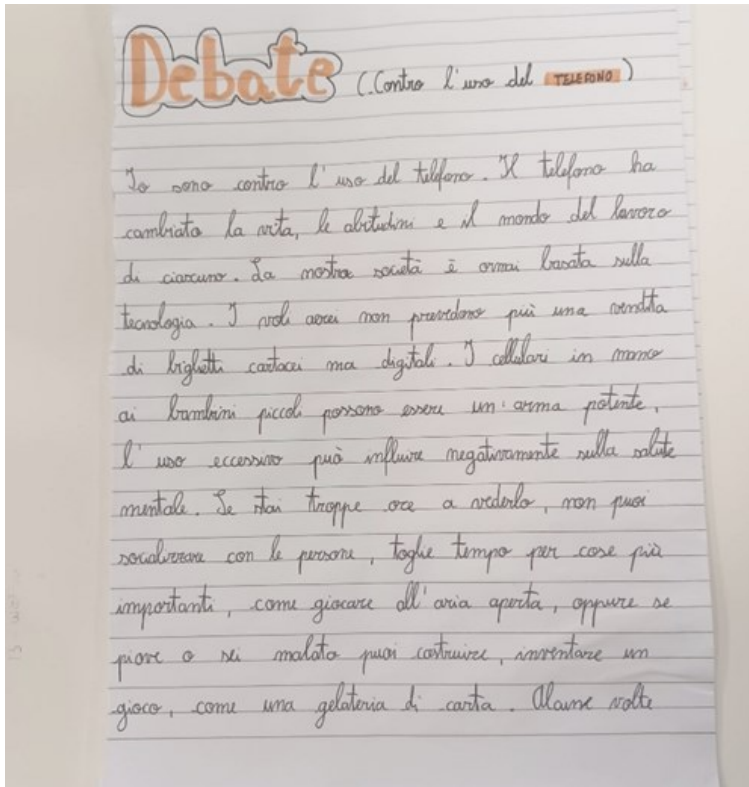 Debate (Contro l'uso del TELEFONO)
Io sono contro l'uso del telefono. Il telefono ha
cambiato la vita, le abitudini e il mondo del lavoro
di ciascuno. La nostra società è ormai basata sulla
tecnologia. I voli aerei non prevedono più una vendita
di biglietti cartacei ma digitali. I cellulari in mano
ai bambini piccoli possono essere un'arma potente,
l'uso eccessivo può influire negativamente sulla salute
mentale. Se stai troppe ore a vederlo, non puoi
socializzare con le persone, toglie tempo per cose più
importanti, come giocare all'aria aperta, oppure se
piove o sei malato puoi costruire, inventare un
gioco, come una gelateria di carta. Alcune volte